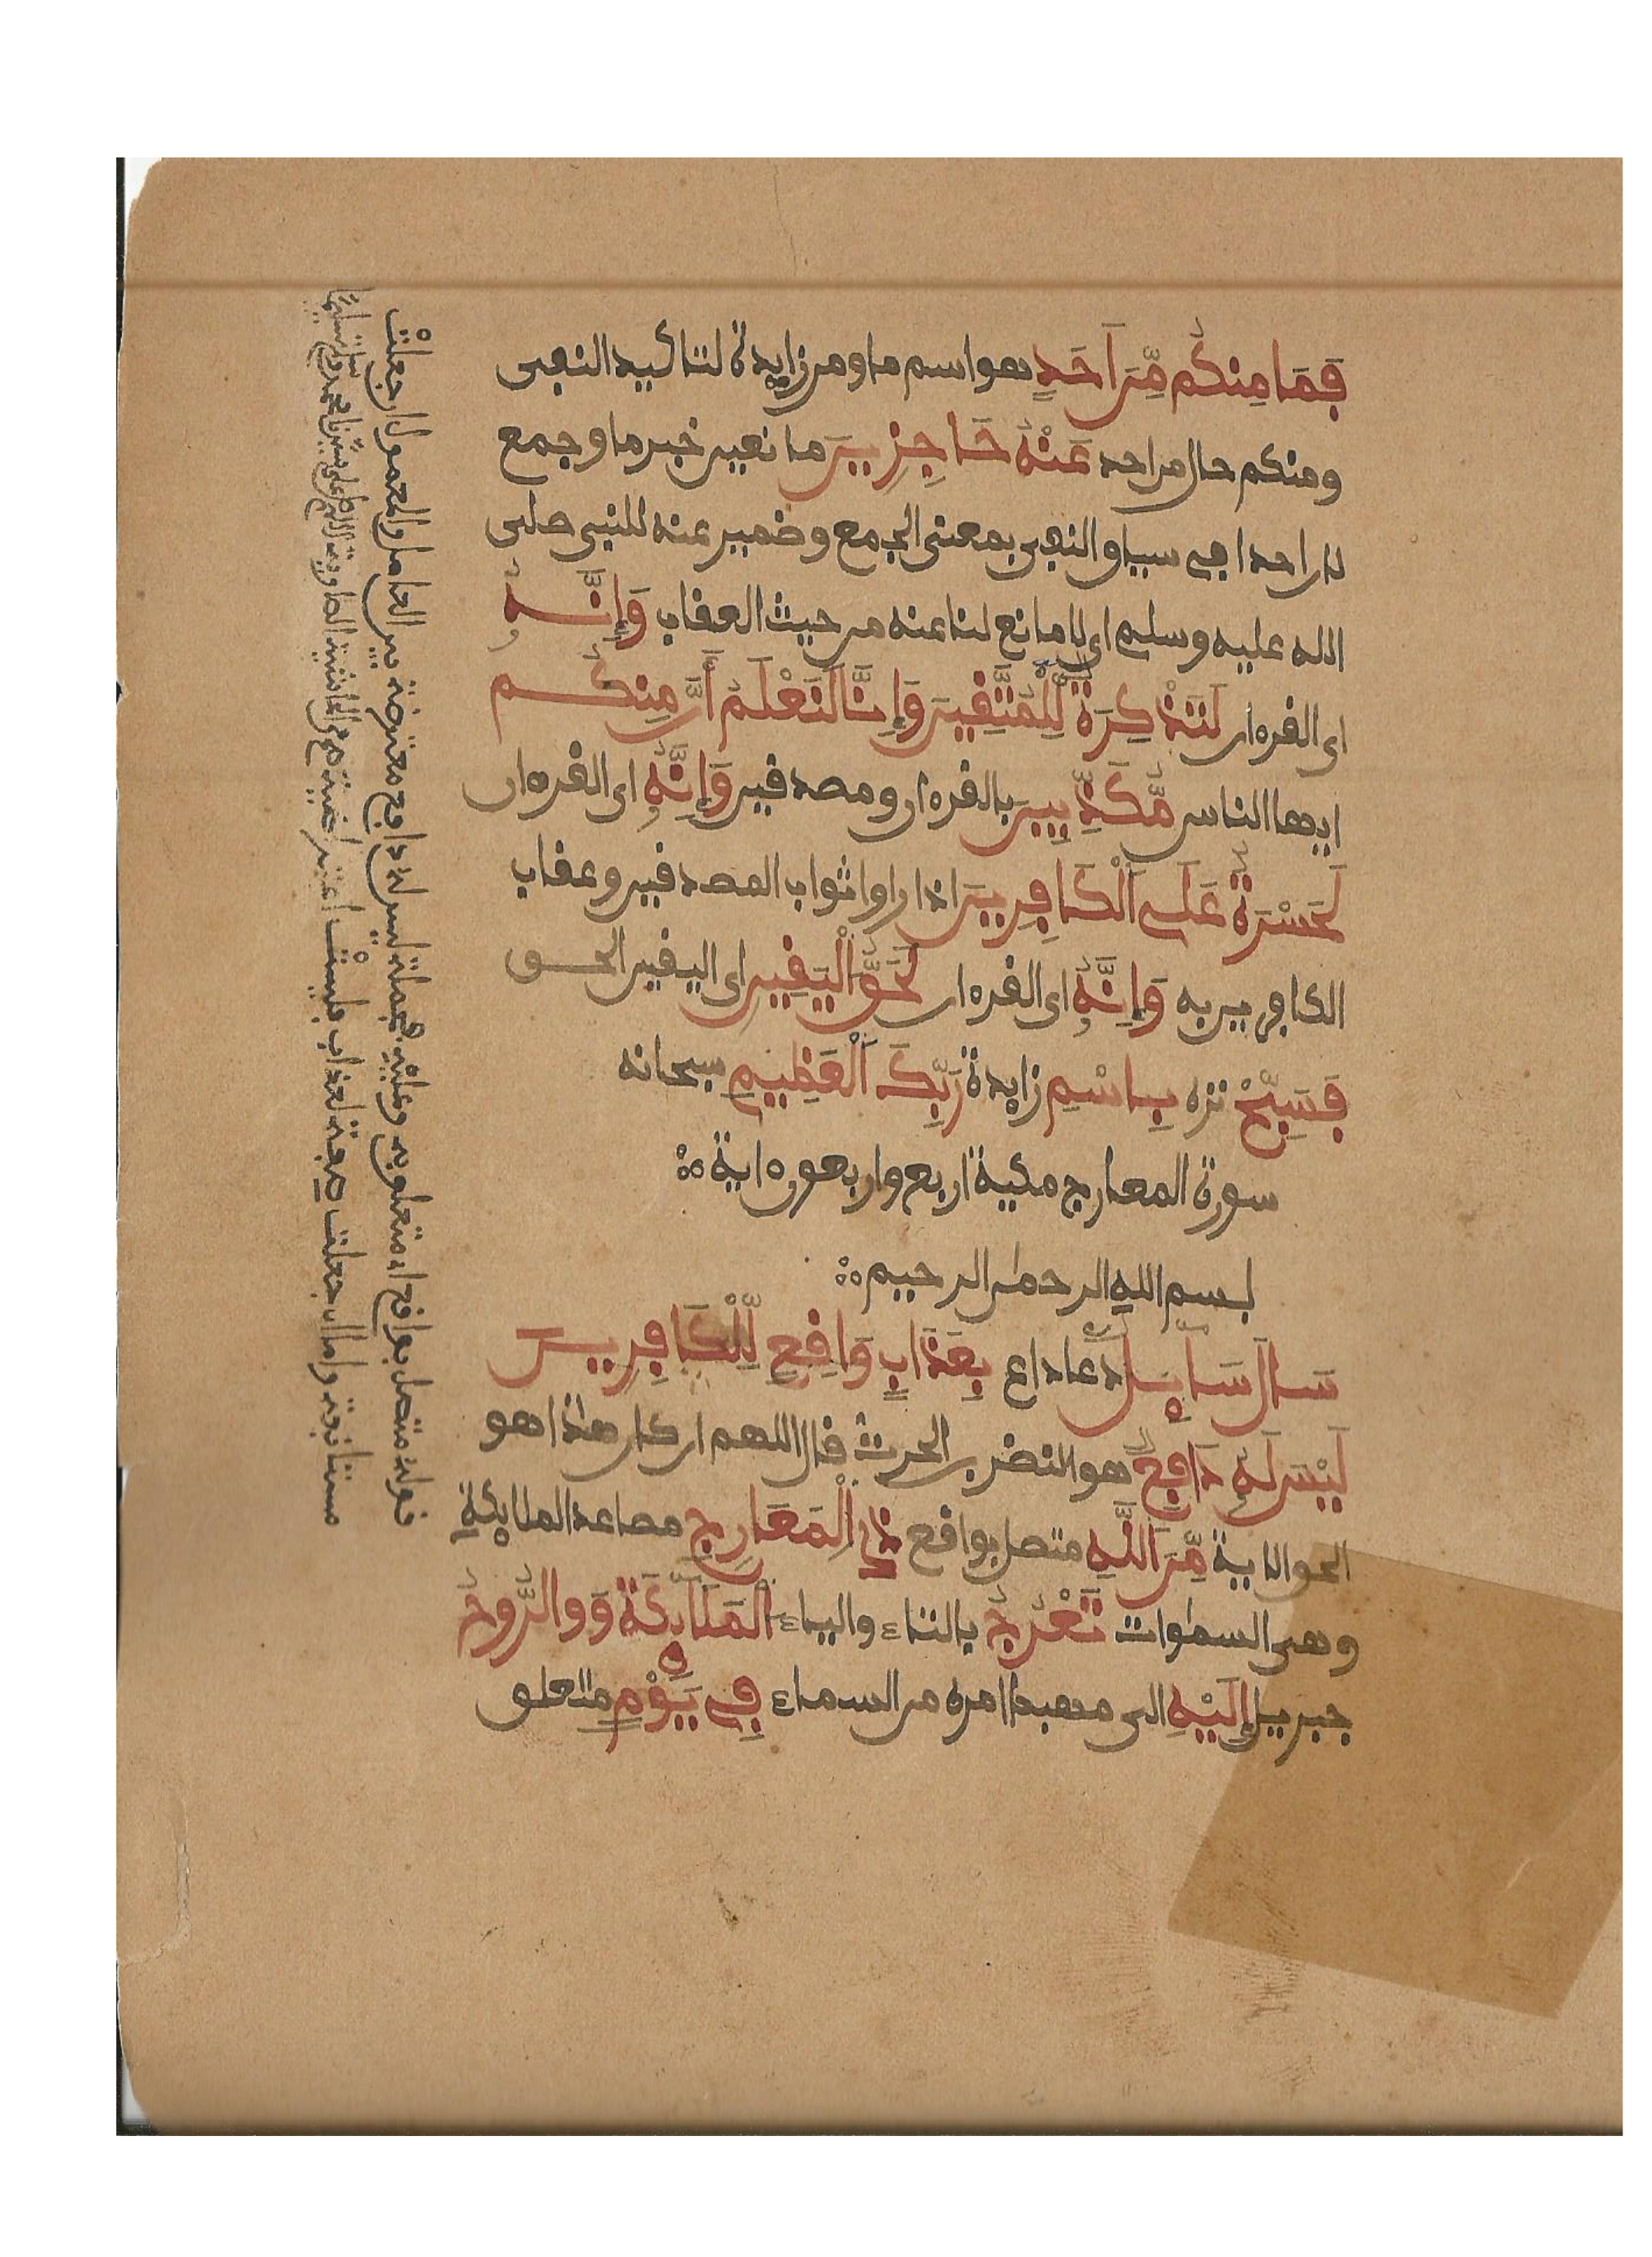 فَمَا مِنكُم مِّنَ اَحَدٍ هو اسم ما ومن زايدة لتاكيد النفى
ومنكم حال من احد عَنْهُ حَاجِزِينَ مانعين خبر ما وجمع
لان احدا في سياق النفى بمعنى الجمع وضمير عنه للنبى صلى
الله عليه وسلم اى لا مانع لنا عنه من حيث العقاب وَإِنَّهُ
اى القرءان لَتَذْكِرَةٌ لِّلْمُتَّقِينَ وَإِنَّا لَنَعْلَمُ أَنَّ مِنكُم
ايها الناس مُّكَذِّبِينَ بالقرءان ومصدقين وَإِنَّهُ اى القرءان
لَحَسْرَةٌ عَلَى اَلْكَافِرِينَ اذا راوا ثواب المصدقين وعقاب
الكافرين به وَإِنَّهُ اى القرءان لَحَقُّ اَلْيَقِينِ اى اليقين الحق
فَسَبِّحْ نزه بِاسْمِ زايدة رَبِّكَ اَلْعَظِيمِ سبحانه
سورة المعارج مكية اربع واربعون ءاية
بسم الله الرحمٰن الرحيم
سَالَ سَايِلٌ دعا داع بِعَذَابٍ وَاقِعٍ لِّلْكَافِرِينَ
لَيْسَ لَهُ دَافِعٌ هو النضر بن الحرث قال اللهم ان كان هٰذا هو
الحق الاية مِّنَ اَللَّهِ متصل بواقع ذِي اِلْمَعَارِجِ مصاعد الملايكة
وهى السمٰوات تَعْرُجُ بالتاء والياء اَلْمَلَايِكَةُ وَوالرُّوحُ
جبريل إِلَيْهِ الى مهبط امره من السماء فِى يَوْمٍ متعلق
قوله متصل بواقع اى متعلق به وعليه فجملة ليس له دافع معترضة بين العامل والمعمول ان جعلتْ
مستانفة واما ان جعلت صفة لعذاب فليستْ اعتراضية